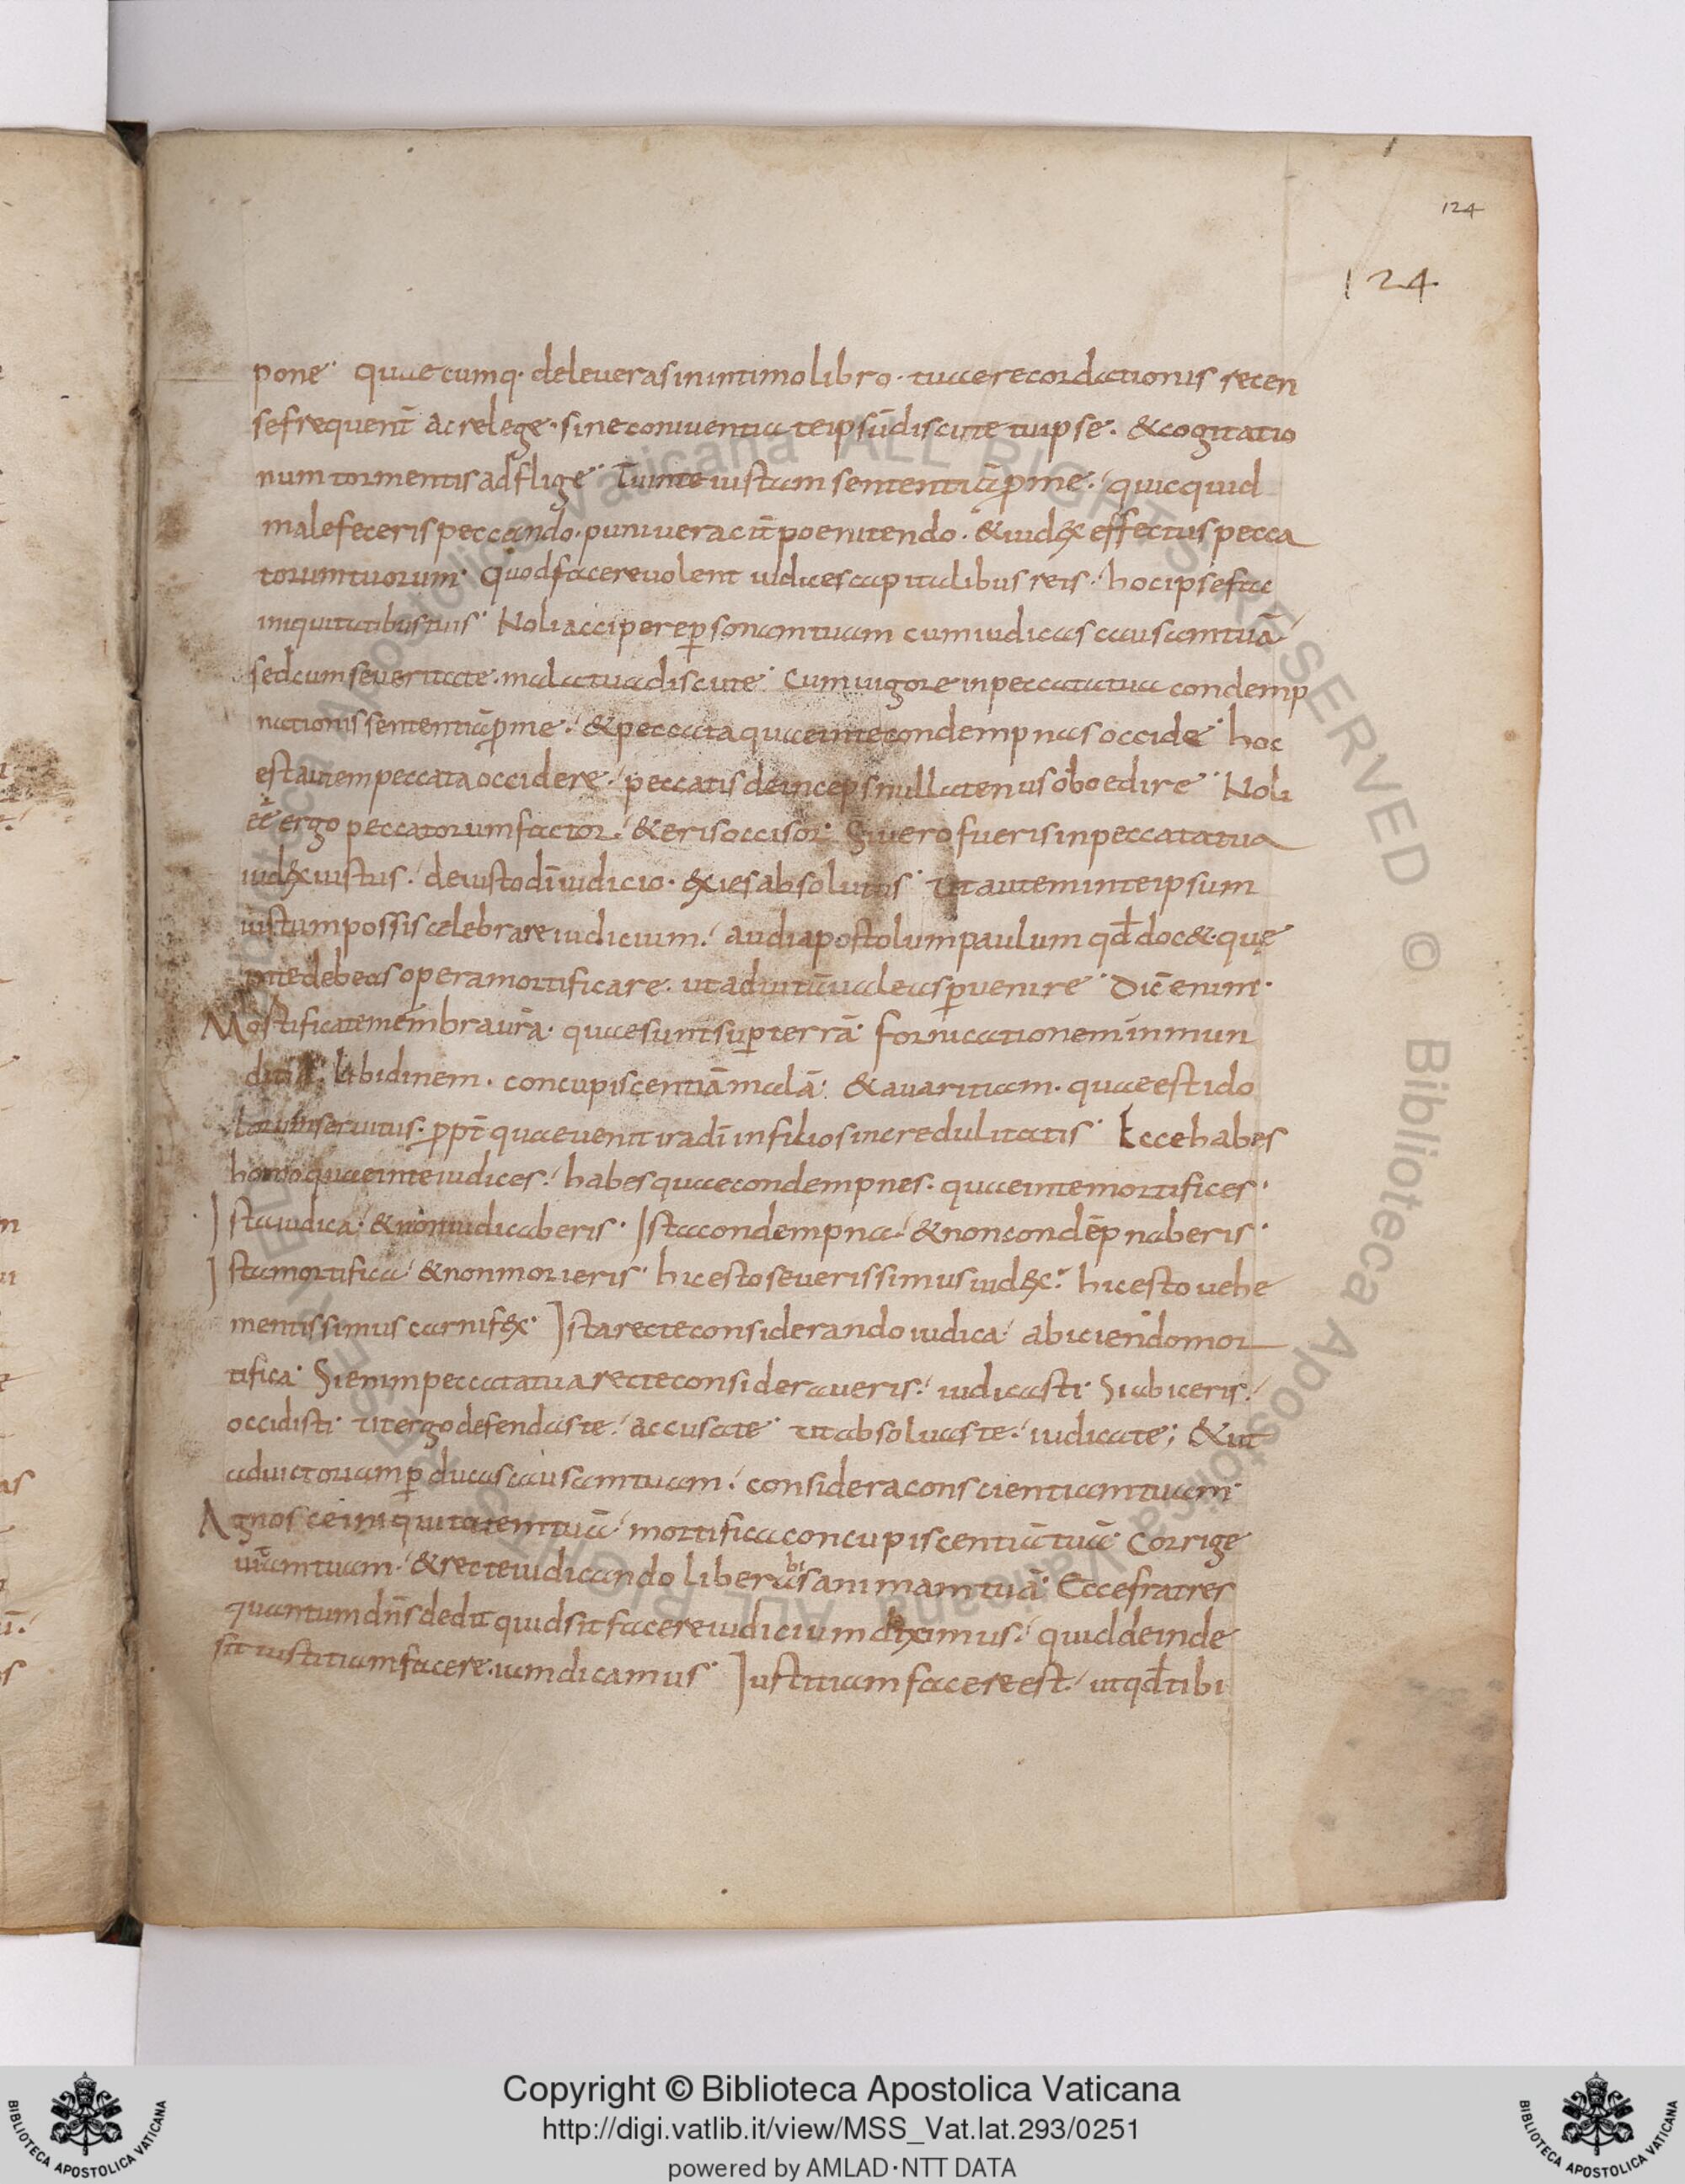 124
124
pone· quaecumq· deleueras in intimo libro· tuae recordationis recen
se frequent̄ ac relege· sine coniuentia te ipsū discute tu ipse· & cogitatio
num tormentis adflige· Tu in te iustam sententiā p̄me· quicquid
male feceris peccando· puni ueracit̄ poenitendo· & iudex effectus pecca
torum tuorum· Quod facere uolent iudices capitalibus reis· hoc ipse fac
iniquitatibus tuis· Noli accipere p̱sonam tuam cum iudicas causam tuā
sed cum seueritate· mala tua discute· Cum uigore in peccata tua condemp
nationis sententiā p̄me· & peccata quae in te condempnas occide· hoc
est autem peccata occidere· peccatis deinceps nullatenus oboedire· Noli
eē ergo peccatorum factor· & eris occisor· Si uero fueris in peccata tua
iudex iustus· de iusto dī iudicio· exies absolutos· Ut autem in te ipsum
iustum possis celebrare iudicium· audi apostolum paulum qđ doc&· que
in te debeas opera mortificare· ut ad uitā ualeas p̱uenire· Dic̄ enim·
Mortificate membra ur̄a· quae sunt sup̱ terrā· fornicationem inmun
ditiā· libidinem· concupiscentiā malā· & auaritiam· quae est ido
lorum seruitus· ppt̄ quae uenit ira dī in filios incredulitatis· Ecce habes
homo quae in te iudices· habes quae condempnes· quae in te mortifices·
Ista iudica· & non iudicaberis· Ista condempna· & non condēpnaberis·
Ista mortifica· & non morieris· hic esto seuerissimus iudex· hic esto uehe
mentissimus carnifex· Ista recte considerando iudica· abiciendo mor
tifica· Si enim peccata tua recte consideraueris· iudicasti· Si abiceris·
occidisti· Ut ergo defendas te· accusa te· ut absoluas te· iudica te; & ut
ad uictoriam p̱ducas causam tuam· considera conscientiam tuam·
Agnosce iniquitatem tuā· mortifica concupiscentiā tuā· Corrige
uitam tuam· & recte iudicando liberabis animam tuā· Ecce fratres
quantum dn̄s dedit quid sit facere iudicium diximus· quid deinde
sit iustitiam facere· iam dicamus· Iustitiam facere est· ut qđ tibi
Copyright © Biblioteca Apostolica Vaticana
http://digi.vatlib.it/view/MSS_Vat.lat.293/0251
powered by AMLAD·NTT DATA
BIBLIOTECA APOSTOLICA VATICANA
BIBLIOTECA APOSTOLICA VATICANA